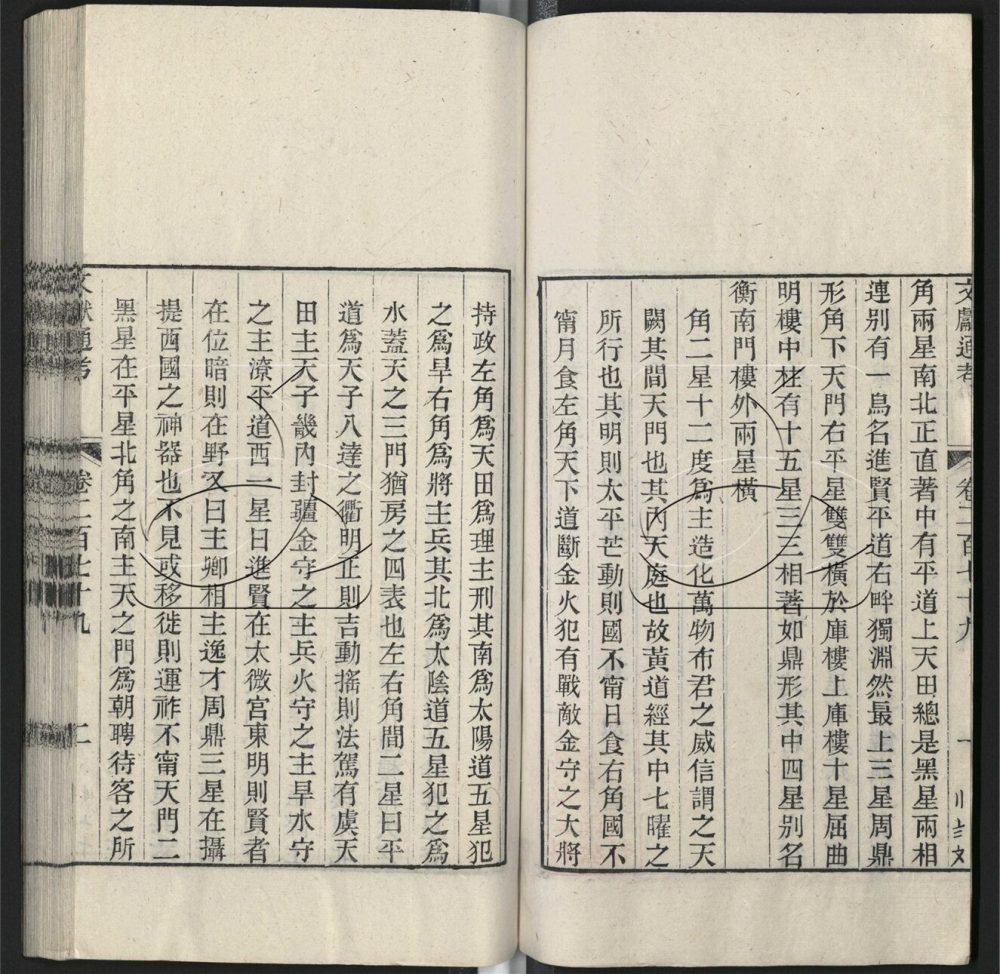 文獻通考 卷二百七十九 一
角兩星南北正直著中有平道上天田總是黑星兩相
連別有一鳥名進賢平道右畔獨淵然最上三星周鼎
形角下天門右平星雙雙橫於庫樓上庫樓十星屈曲
明樓中柱有十五星三三相著如鼎形其中四星別名
衡南門樓外兩星橫
角二星十二度爲主造化萬物布君之威信謂之天
闕其間天門也其內天庭也故黃道經其中七曜之
所行也其明則太平芒動則國不甯日食右角國不
甯月食左角天下道斷金火犯有戰敵金守之大將
持政左角爲天田爲理主刑其南爲太陽道五星犯
之爲旱右角爲將主兵其北爲太陰道五星犯之爲
水蓋天之三門猶房之四表也左右角間二星曰平
道爲天子八達之衢明正則吉動搖則法駕有虞天
田主天子畿內封疆金守之主兵火守之主旱水守
之主潦平道西一星曰進賢在太微宮東明則賢者
在位暗則在野又曰主卿相主逸才周鼎三星在攝
提西國之神器也不見或移徙則運祚不甯天門二
黑星在平星北角之南主天之門爲朝聘待客之所
文獻通考 卷二百七十九 二